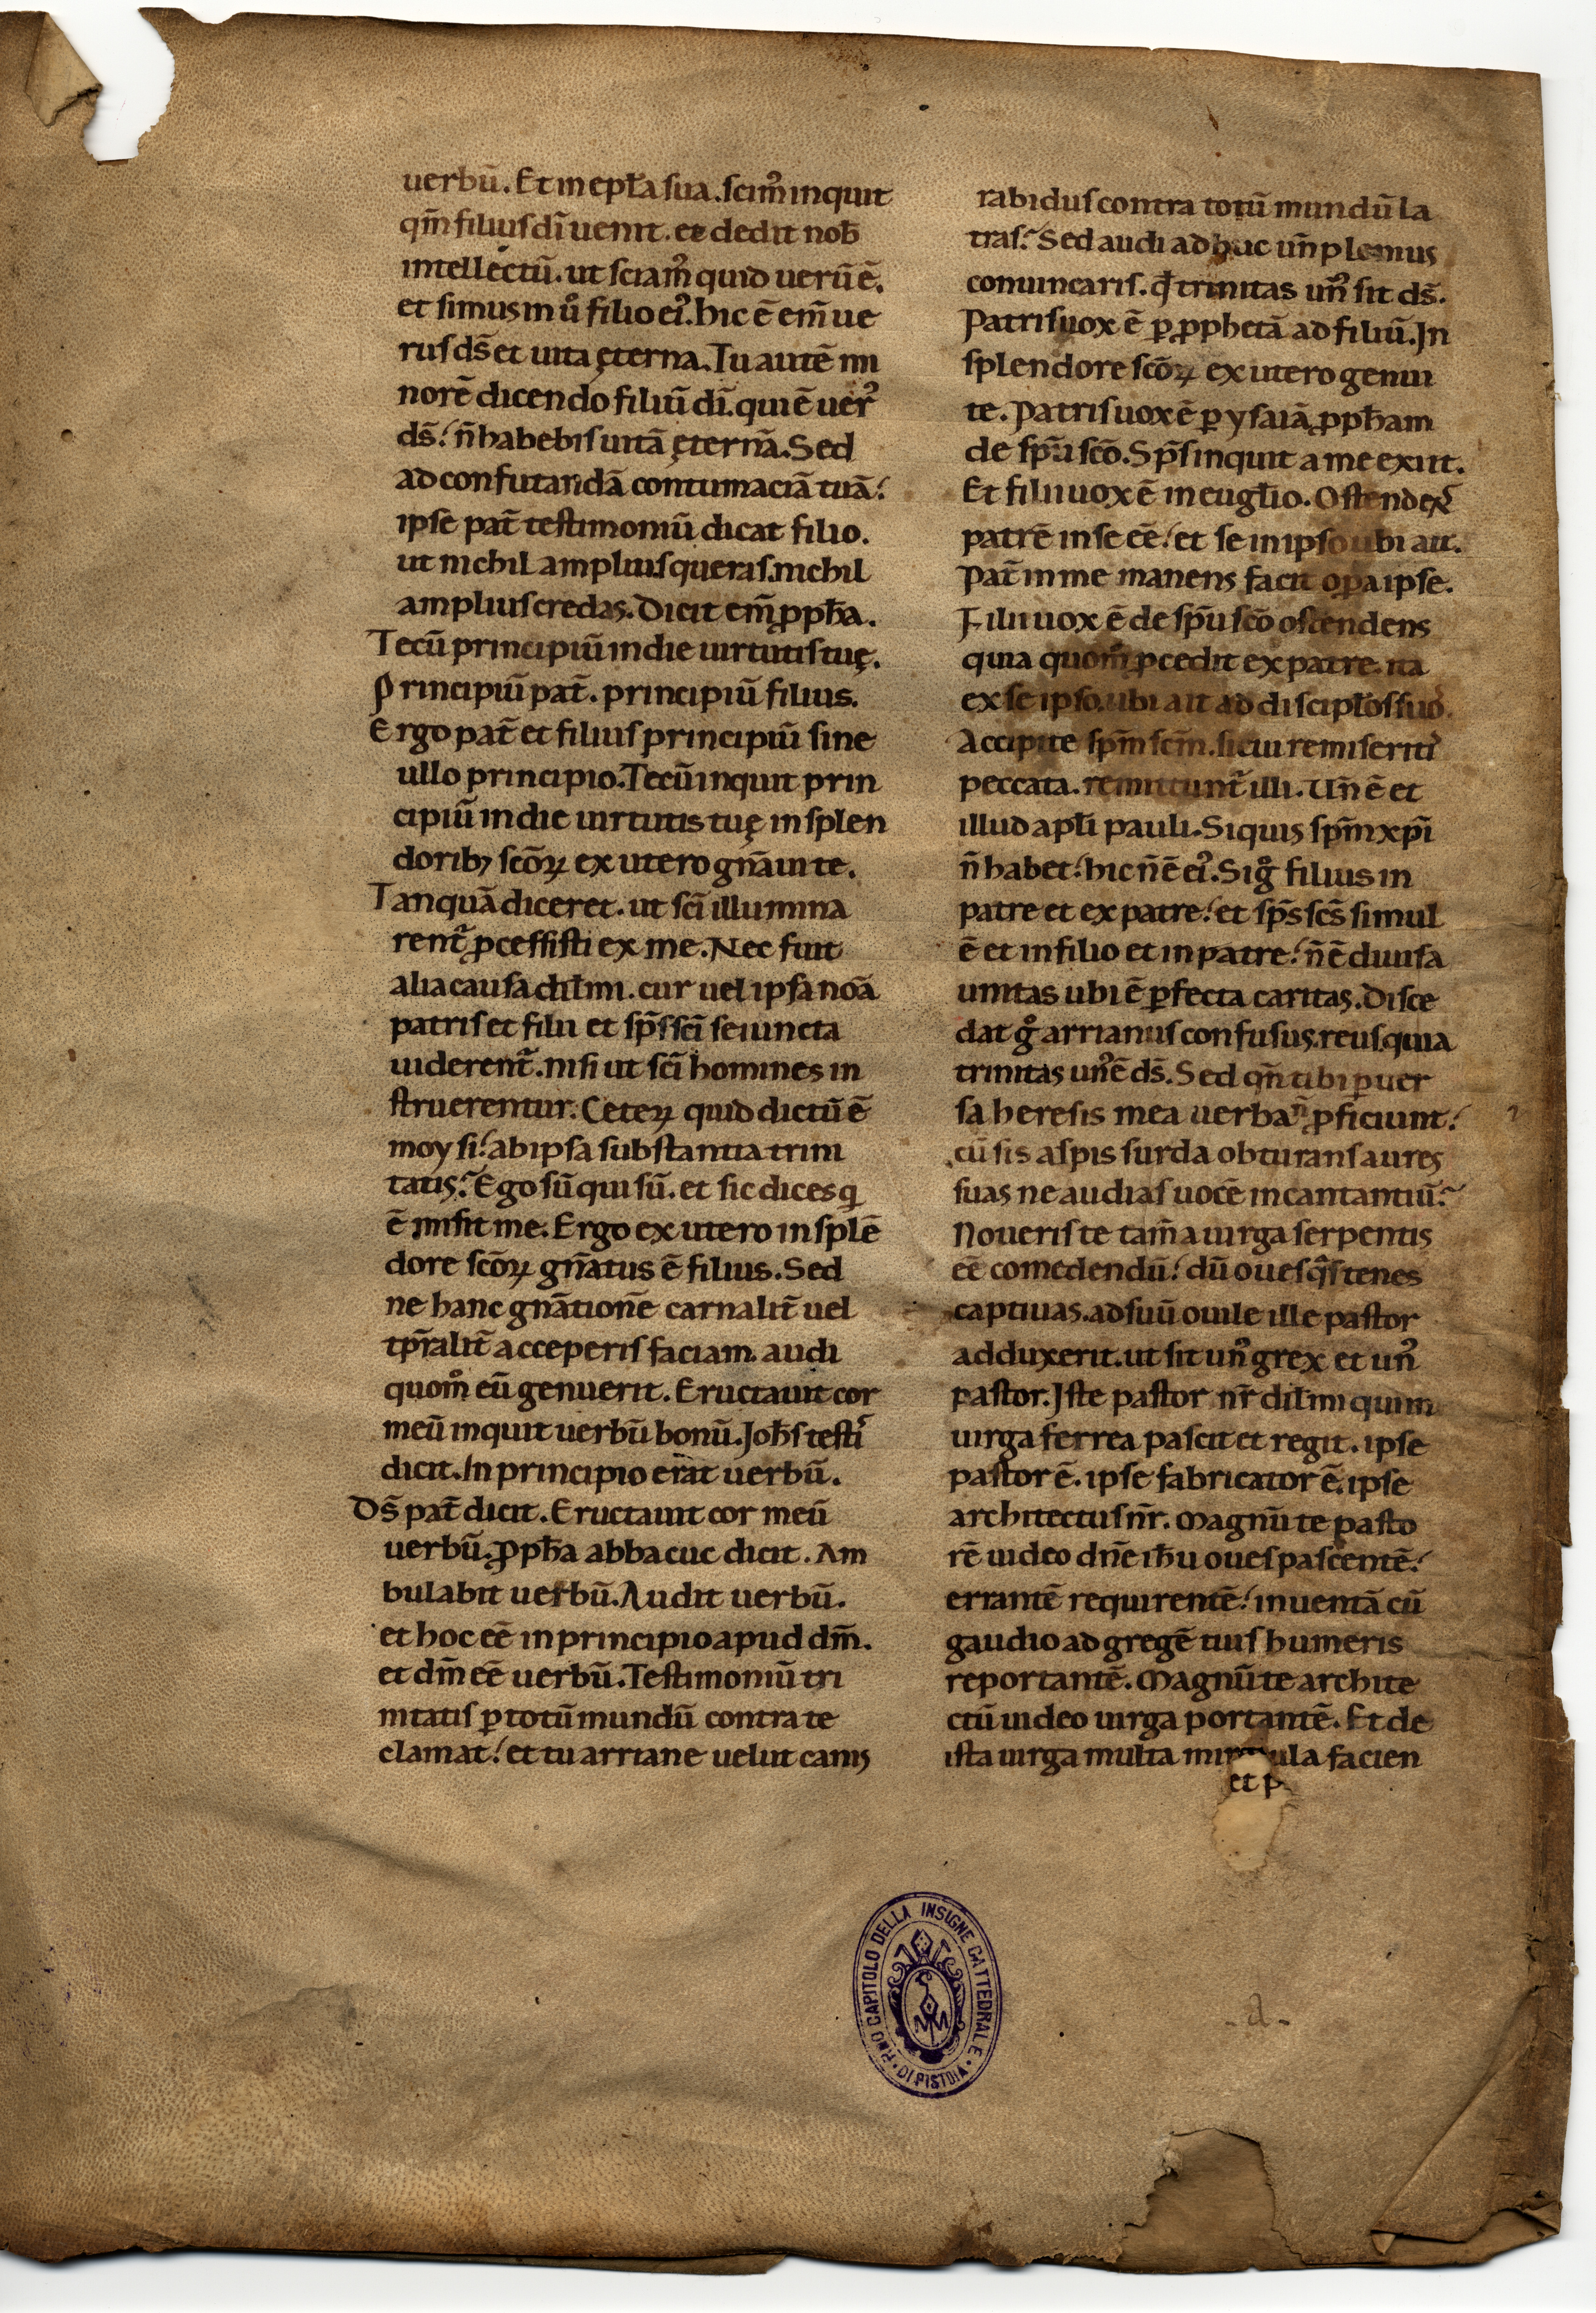 uerbū. Et in epła sua. scim᾽ inquit
qm̄ filius dī uenit. et dedit nob̄
intellectū. ut sciam᾽ quid uerū ē.
et simus in ů filio ei᾽. hic ē em̄ ue
rus ds̄ et uita ęterna. Tu autē mi
norē dicendo filiū dī. qui ē uer᾽
ds̄. n̄ habebis uitā ęternā. Sed
ad confutandā contumaciā tuā.
ipse pat̄ testimoniū dicat filio.
ut nichil amplius queras. nichil
amplius credas. Dicit em̄ ꝓpħa.
Tecū principiū in die uirtutis tuę.
Principiū pat̄. principiū filius.
Ergo pat̄ et filius principiū sine
ullo principio. Tecū inquit prin
cipiū in die uirtutis tuę in splen
dorib; scōꝝ ex utero gn̄aui te.
Tanquā diceret. ut scī illumina
rent᷑ ꝓcessisti ex me. Nec fuit
alia causa dil̄mi. cur uel ipsa noā
patris et filii et sp̄s scī seiuncta
uiderent᷑. nisi ut scī homines in
struerentur. Ceteꝝ quid dictū ē
moysi. ab ipsa substantia trini
tatis. Ego sū qui sū. et sic dices q̇
ē misit me. Ergo ex utero in splē
dore scōꝝ gn̄atus ē filius. Sed
ne hanc gn̄ationē carnalit̄ uel
tp̄ralit̄ acceperis faciam. audi
quom̊ eū genuerit. Eructauit cor
meū inquit uerbū bonū. Joħs testi᾽
dicit. In principio erat uerbū.
Ds̄ pat̄ dicit. Eructauit cor meū
uerbū. ꝓpħa abbacuc dicit. Am
bulabit uerbū. Audit uerbū.
et hoc eē in principio apud dm̄.
et dm̄ eē uerbū. Testimoniū tri
nitatis ꝑ totū mundū contra te
clamat. et tu arriane uelut canis
rabidus contra totū mundū la
tras. Sed audi adhuc un̄ plenius
conuincaris. qđ trinitas un᾽ sit ds̄.
Patris uox ē ꝑ ꝓphetā ad filiū. In
splendore scōꝝ ex utero genui
te. Patris uox ē ꝑ ysaiā ꝓpħam
de sp̄u scō. Sp̄s inquit a me exiit.
Et filii uox ē in eugl̄io. Ostendēs
patrē in se eē. et se in ipso ubi ait.
Pat̄ in me manens facit oꝑa ipse.
Filii uox ē de sp̄u scō ostendens
quia quom̊ ꝓcedit ex patre. ita
ex se ipso. ubi ait ad discipłos suo᾽.
Accipite sp̄m scm̄. si cui remiseriti᾽
peccata. remittunt᷑ illi. Un̄ ē et
illud apl̄i pauli. Siquis sp̄m xp̄i
n̄ habet. hic n̄ ē ei᾽. Si g̊ filius in
patre et ex patre. et sp̄s scs̄ simul
ē et in filio et in patre. n̄ ē diuisa
unitas ubi ē ꝑfecta caritas. Disce
dat g̊ arrianus confusus. reus. quia
trinitas un᾽ ē ds̄. Sed qn̄ tibi ꝑuer
sa heresis mea uerba n̄ ꝓficiunt.
cū sis aspis surda obturans aures
suas ne audias uocē incantantiū.
Noueris te tam̄ a uirga serpentis
eē comedendū. dū oues q̄s tenes
captiuas. ad suū ouile ille pastor
adduxerit. ut sit un᾽ grex et un᾽
pastor. Iste pastor nr̄ dil̄mi qui in
uirga ferrea pascit et regit. ipse
pastor ē. ipse fabricator ē. ipse
architectus nr̄. Magnū te pasto
rē uideo dn̄e iħu oues pascentē.
errantē requirentē. inuentā cū
gaudio ad gregē tuis humeris
reportantē. Magnū te archite
ctū uideo uirga portantē. Et de
ista uirga multa facien
et p
R.MO CAPITOLO DELLA INSIGNE CATTEDRALE
DI PISTOIA